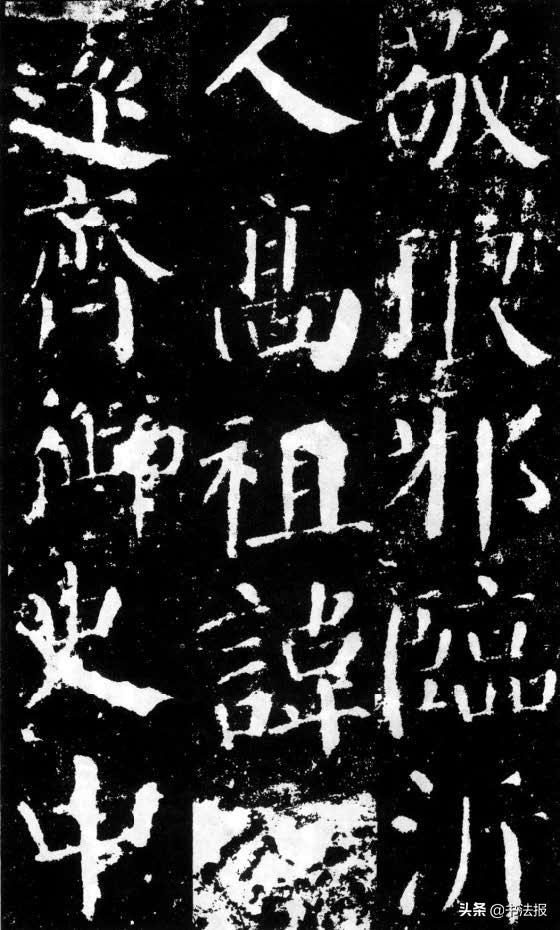 敬琅邪臨沂
人髙祖諱
逺齊御史中
头条 @书法报